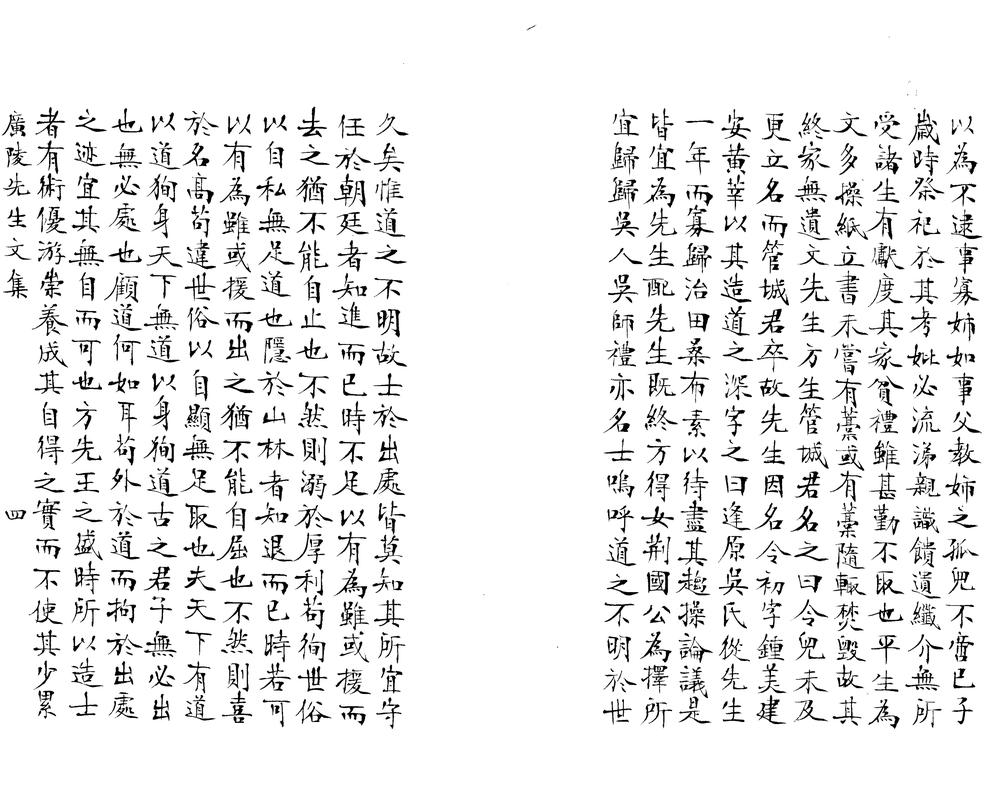 以為不逮事寡姉如事父教姉之孤兒不啻已子
歳時祭祀於其考妣必流涕親識饋遺纖介無所
受諸生有獻度其家貧禮雖甚勤不取也平生為
文多操紙立書未嘗有藁或有藁隨輙焚毀故其
終家無遺文先生方生管城君名之曰令兒未及
更立名而管城君卒故先生因名令初字鍾美建
安黄莘以其造道之深字之曰逢原吳氏從先生
一年而寡歸治田桑布素以待盡其趨操論議是
皆宜為先生配先生既終方得女荆國公為擇所
宜歸歸吳人吳師禮亦名士嗚呼道之不明於世
久矣惟道之不明故士於出處皆莫知其所宜守
任於朝廷者知進而已時不足以有為雖或援而
去之猶不能自止也不然則溺於厚利苟徇世俗
以自私無足道也隱於山林者知退而已時若可
以有為雖或援而出之猶不能自屈也不然則喜
於名髙苟違世俗以自顯無足取也夫天下有道
以道狥身天下無道以身狥道古之君子無必出
也無必處也顧道何如耳苟外於道而拘於出處
之迹宜其無自而可也方先王之盛時所以造士
者有術優游崇養成其自得之實而不使其少累
廣陵先生文集 四